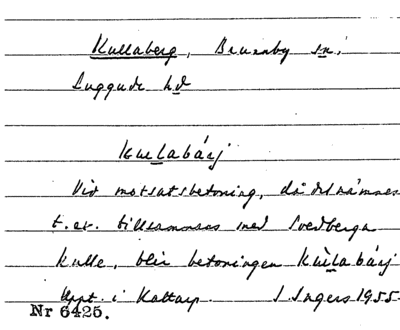 Kullaberg, Brunnby sn,
Luggude hd
Kullabárj
Vid motsatsbetoning, då det nämnes
t.ex. tillsammans med Svedberga
kulle, blir betoningen Kùllabárj
Uppt. i Kattarp. I Ingers 1955
Nr 6425.